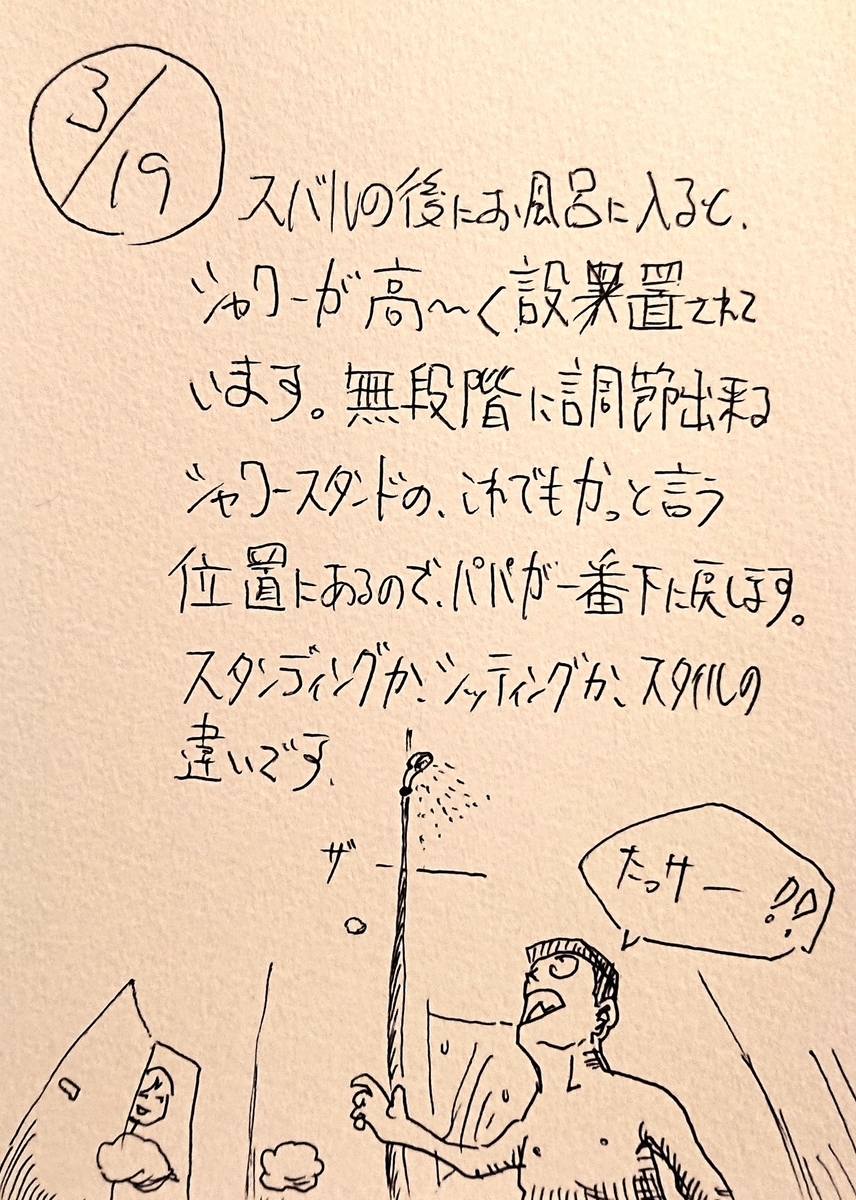 3/19
スバルの後にお風呂に入ると、
シャワーが高〜く設置されて
います。無段階に調節出来る
シャワースタンドの、これでもかっと言う
位置にあるので、パパが一番下に戻します。
スタンディングか、シッティングか、スタイルの
違いです。
ザー
たっけー!?